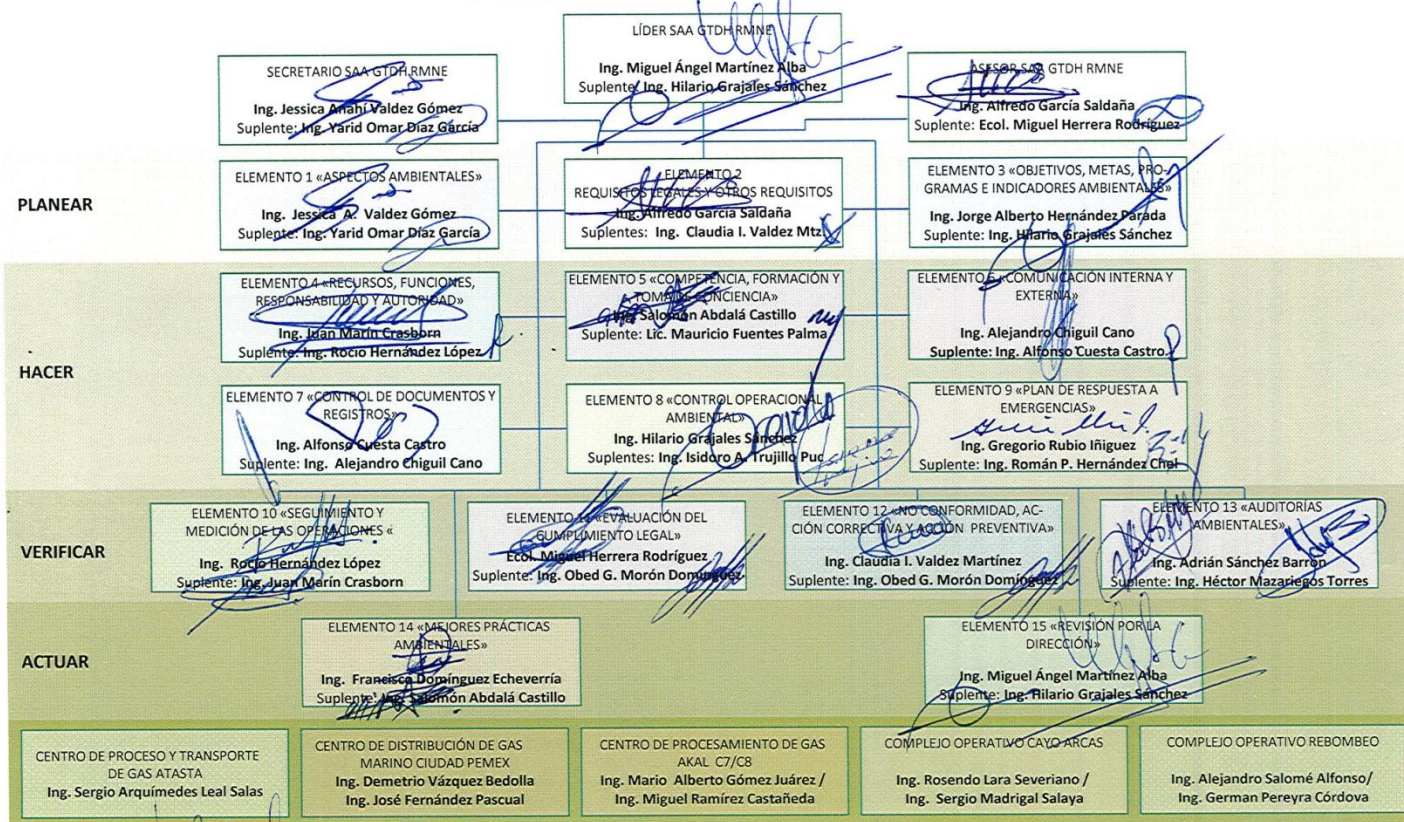 LÍDER SAA GTDH RMNE
Ing. Miguel Ángel Martínez Alba
Suplente: Ing. Hilario Grajales Sánchez
SECRETARIO SAA GTDH RMNE
Ing. Jessica Anahí Valdez Gómez
Suplente: Ing. Yarid Omar Díaz García
ASESOR SAA GTDH RMNE
Ing. Alfredo García Saldaña
Suplente: Ecol. Miguel Herrera Rodríguez
PLANEAR
ELEMENTO 1 «ASPECTOS AMBIENTALES»
Ing. Jessica A. Valdez Gómez
Suplente: Ing. Yarid Omar Díaz García
ELEMENTO 2
REQUISITOS LEGALES Y OTROS REQUISITOS
Ing. Alfredo García Saldaña
Suplentes: Ing. Claudia I. Valdez Mtz.
ELEMENTO 3 «OBJETIVOS, METAS, PRO-
GRAMAS E INDICADORES AMBIENTALES»
Ing. Jorge Alberto Hernández Parada
Suplente: Ing. Hilario Grajales Sánchez
HACER
ELEMENTO 4 «RECURSOS, FUNCIONES,
RESPONSABILIDAD Y AUTORIDAD»
Ing. Juan Marín Crasborn
Suplente: Ing. Rocío Hernández López
ELEMENTO 5 «COMPETENCIA, FORMACIÓN Y
TOMA DE CONCIENCIA»
Ing. Salomón Abdalá Castillo
Suplente: Lic. Mauricio Fuentes Palma
ELEMENTO 6 «COMUNICACIÓN INTERNA Y
EXTERNA»
Ing. Alejandro Chiguil Cano
Suplente: Ing. Alfonso Cuesta Castro
ELEMENTO 7 «CONTROL DE DOCUMENTOS Y
REGISTROS»
Ing. Alfonso Cuesta Castro
Suplente: Ing. Alejandro Chiguil Cano
ELEMENTO 8 «CONTROL OPERACIONAL
AMBIENTAL»
Ing. Hilario Grajales Sánchez
Suplentes: Ing. Isidoro A. Trujillo Puc
ELEMENTO 9 «PLAN DE RESPUESTA A
EMERGENCIAS»
Ing. Gregorio Rubio Iñiguez
Suplente: Ing. Román P. Hernández Chel
VERIFICAR
ELEMENTO 10 «SEGUIMIENTO Y
MEDICIÓN DE LAS OPERACIONES «
Ing. Rocío Hernández López
Suplente: Ing. Juan Marín Crasborn
ELEMENTO 11 «EVALUACIÓN DEL
CUMPLIMIENTO LEGAL»
Ecol. Miguel Herrera Rodríguez
Suplente: Ing. Obed G. Morón Domínguez
ELEMENTO 12 «NO CONFORMIDAD, AC-
CIÓN CORRECTIVA Y ACCIÓN PREVENTIVA»
Ing. Claudia I. Valdez Martínez
Suplente: Ing. Obed G. Morón Domínguez
ELEMENTO 13 «AUDITORÍAS
AMBIENTALES»
Ing. Adrián Sánchez Barrón
Suplente: Ing. Héctor Mazariegos Torres
ACTUAR
ELEMENTO 14 «MEJORES PRÁCTICAS
AMBIENTALES»
Ing. Francisco Domínguez Echeverría
Suplente: Ing. Salomón Abdalá Castillo
ELEMENTO 15 «REVISIÓN POR LA
DIRECCIÓN»
Ing. Miguel Ángel Martínez Alba
Suplente: Ing. Hilario Grajales Sánchez
CENTRO DE PROCESO Y TRANSPORTE
DE GAS ATASTA
Ing. Sergio Arquímedes Leal Salas
CENTRO DE DISTRIBUCIÓN DE GAS
MARINO CIUDAD PEMEX
Ing. Demetrio Vázquez Bedolla
Ing. José Fernández Pascual
CENTRO DE PROCESAMIENTO DE GAS
AKAL C7/C8
Ing. Mario Alberto Gómez Juárez /
Ing. Miguel Ramírez Castañeda
COMPLEJO OPERATIVO CAYO ARCAS
Ing. Rosendo Lara Severiano /
Ing. Sergio Madrigal Salaya
COMPLEJO OPERATIVO REBOMBEO
Ing. Alejandro Salomé Alfonso/
Ing. German Pereyra Córdova